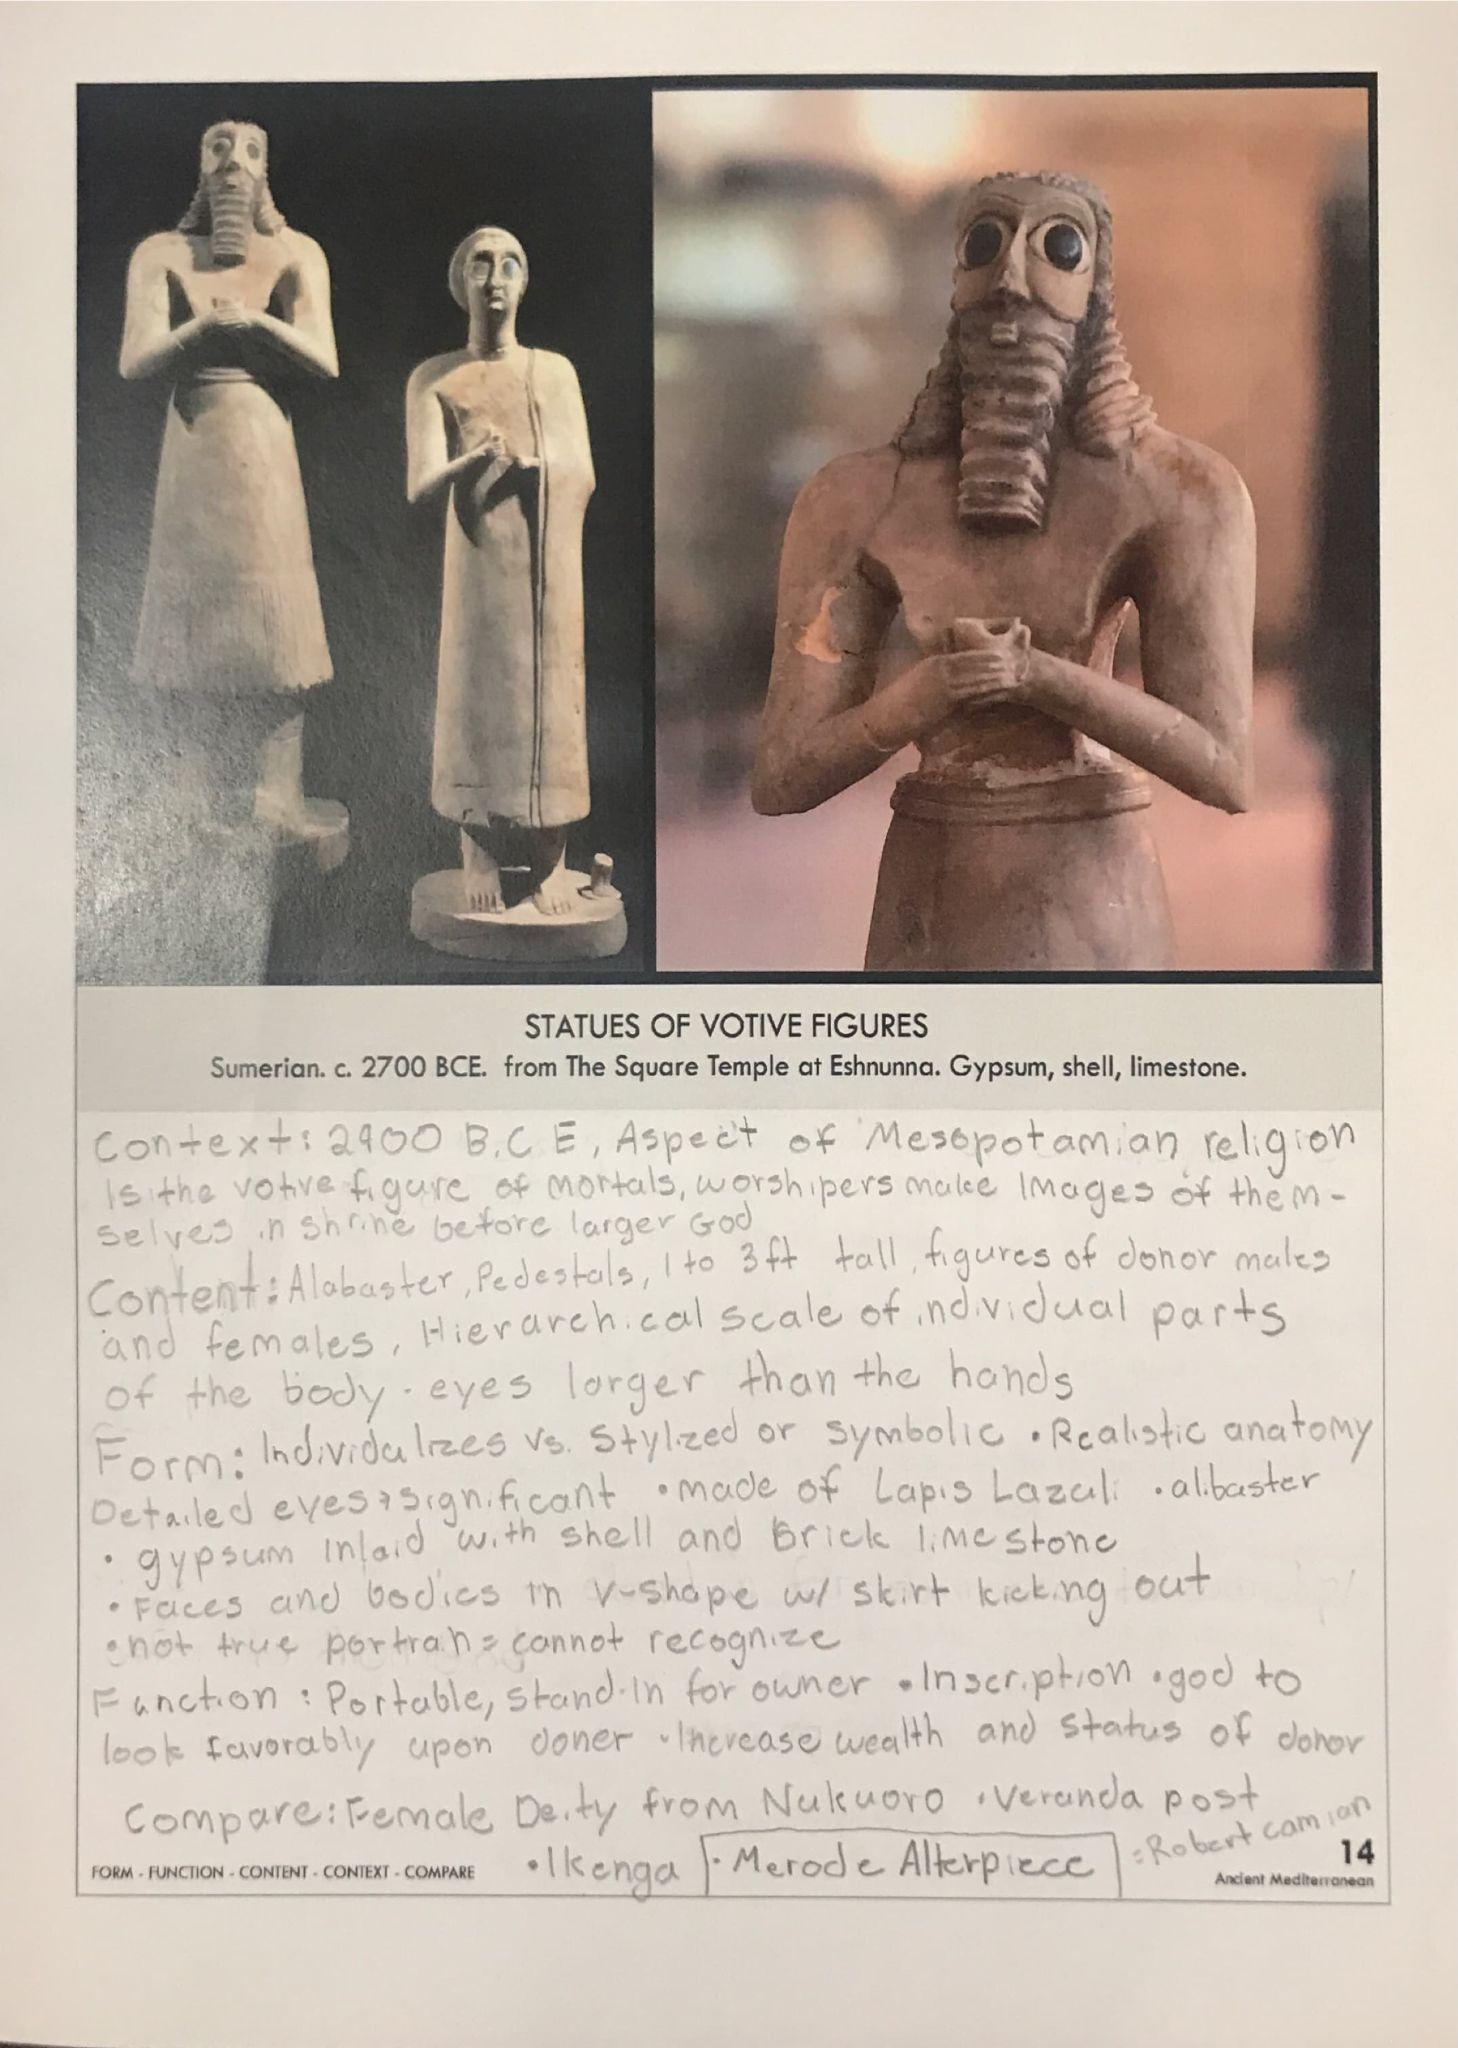 STATUES OF VOTIVE FIGURES
Sumerian. c. 2700 BCE. from The Square Temple at Eshnunna. Gypsum, shell, limestone.
Context: 2900 B.C E, Aspect of Mesopotamian religion
Is the votive figure of mortals, worshipers make Images of them-
selves in shrine before larger God
Content: Alabaster, Pedestals, 1 to 3ft tall, figures of donor males
and females, Hierarchical scale of individual parts
of the body · eyes larger than the hands
Form: Individualizes vs. Stylized or symbolic • Realistic anatomy
Detailed eyes → significant • made of Lapis Lazuli • alibaster
• gypsum inlaid with shell and Brick limestone
• Faces and bodies in V-shape w/ skirt kicking out
• not true = cannot recognize
Function: Portable, stand-in for owner • Inscription • god to
look favorably upon doner • Increase wealth and status of donor
Compare: Female Deity from Nukuoro • Veranda post
• Ikenga • Merode Alterpiece = Robert camian
FORM - FUNCTION - CONTENT - CONTEXT - COMPARE
14
Ancient Mediterranean